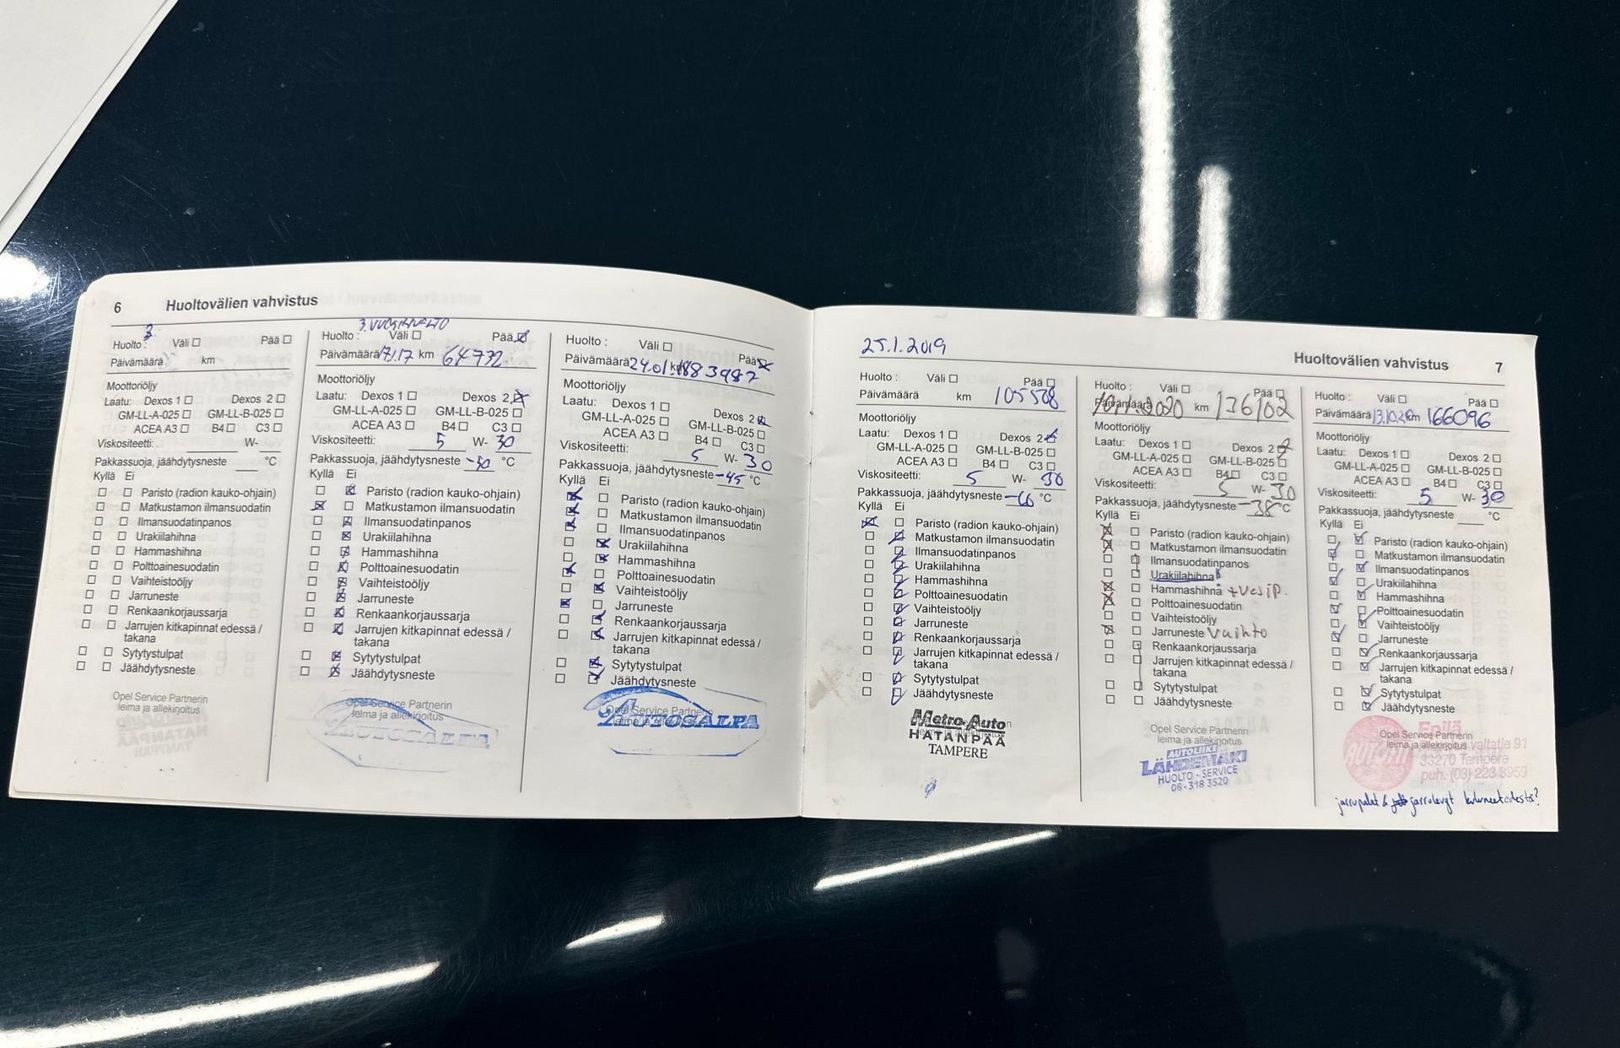 6 Huoltovälien vahvistus
3
Huolto : Väli Pää
Päivämäärä km
Moottoriöljy
Laatu: Dexos 1 Dexos 2
GM-LL-A-025 GM-LL-B-025
ACEA A3 B4 C3
Viskositeetti: W-
Pakkassuoja, jäähdytysneste °C
Kyllä Ei
Paristo (radion kauko-ohjain)
Matkustamon ilmansuodatin
Ilmansuodatinpanos
Urakiilahihna
Hammashihna
Polttoainesuodatin
Vaihteistoöljy
Jarruneste
Renkaankorjaussarja
Jarrujen kitkapinnat edessä /
takana
Sytytystulpat
Jäähdytysneste
Opel Service Partnerin
leima ja allekirjoitus
3. VUOSIHUOLTO
Huolto : Väli Pää
Päivämäärä km 64732
Moottoriöljy
Laatu: Dexos 1 Dexos 2
GM-LL-A-025 GM-LL-B-025
ACEA A3 B4 C3
Viskositeetti: 5 W- 30
Pakkassuoja, jäähdytysneste -30 °C
Kyllä Ei
Paristo (radion kauko-ohjain)
Matkustamon ilmansuodatin
Ilmansuodatinpanos
Urakiilahihna
Hammashihna
Polttoainesuodatin
Vaihteistoöljy
Jarruneste
Renkaankorjaussarja
Jarrujen kitkapinnat edessä /
takana
Sytytystulpat
Jäähdytysneste
Opel Service Partnerin
leima ja allekirjoitus
AUTOSALPA
Huolto : Väli Pää
Päivämäärä 24.01.18 km 83987
Moottoriöljy
Laatu: Dexos 1 Dexos 2
GM-LL-A-025 GM-LL-B-025
ACEA A3 B4 C3
Viskositeetti: 5 W- 30
Pakkassuoja, jäähdytysneste -45 °C
Kyllä Ei
Paristo (radion kauko-ohjain)
Matkustamon ilmansuodatin
Ilmansuodatinpanos
Urakiilahihna
Hammashihna
Polttoainesuodatin
Vaihteistoöljy
Jarruneste
Renkaankorjaussarja
Jarrujen kitkapinnat edessä /
takana
Sytytystulpat
Jäähdytysneste
Opel Service Partnerin
leima ja allekirjoitus
AUTOSALPA
Huoltovälien vahvistus 7
25.1.2019
Huolto : Väli Pää
Päivämäärä km 105508
Moottoriöljy
Laatu: Dexos 1 Dexos 2
GM-LL-A-025 GM-LL-B-025
ACEA A3 B4 C3
Viskositeetti: 5 W- 30
Pakkassuoja, jäähdytysneste °C
Kyllä Ei
Paristo (radion kauko-ohjain)
Matkustamon ilmansuodatin
Ilmansuodatinpanos
Urakiilahihna
Hammashihna
Polttoainesuodatin
Vaihteistoöljy
Jarruneste
Renkaankorjaussarja
Jarrujen kitkapinnat edessä /
takana
Sytytystulpat
Jäähdytysneste
Metro-Auto
HATANPÄÄ
TAMPERE
Huolto : Väli Pää
Päivämäärä km 136102
Moottoriöljy
Laatu: Dexos 1 Dexos 2
GM-LL-A-025 GM-LL-B-025
ACEA A3 B4 C3
Viskositeetti: 5 W- 30
Pakkassuoja, jäähdytysneste -38 °C
Kyllä Ei
Paristo (radion kauko-ohjain)
Matkustamon ilmansuodatin
Ilmansuodatinpanos
Urakiilahihna
Hammashihna + vesip.
Polttoainesuodatin
Vaihteistoöljy
Jarruneste vaihto
Renkaankorjaussarja
Jarrujen kitkapinnat edessä /
takana
Sytytystulpat
Jäähdytysneste
Opel Service Partnerin
leima ja allekirjoitus
AUTOLIIKE
LÄHDEMÄKI
HUOLTO - SERVICE
06-318 3520
Huolto : Väli Pää
Päivämäärä km 166096
Moottoriöljy
Laatu: Dexos 1 Dexos 2
GM-LL-A-025 GM-LL-B-025
ACEA A3 B4 C3
Viskositeetti: 5 W- 30
Pakkassuoja, jäähdytysneste °C
Kyllä Ei
Paristo (radion kauko-ohjain)
Matkustamon ilmansuodatin
Ilmansuodatinpanos
Urakiilahihna
Hammashihna
Polttoainesuodatin
Vaihteistoöljy
Jarruneste
Renkaankorjaussarja
Jarrujen kitkapinnat edessä /
takana
Sytytystulpat
Jäähdytysneste
Opel Service Partnerin
leima ja allekirjoitus
valtatie 91
33270 Tampere
puh. (03) 223 3959
jarrupalat & jarrulevyt kuluneet edestä?